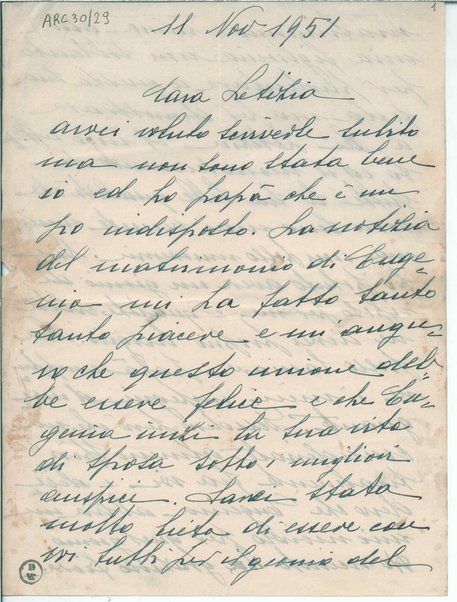 ARC 30/29
1
11 Nov 1951
Cara Letizia
avrei voluto scriverle subito
ma non sono stata bene
io ed ho papà che è un
po indisposto. La notizia
del matrimonio di Euge-
nio mi ha fatto tanto
tanto piacere e mi augu-
ro che questo unione deb-
be essere felice e che Eu-
genia inizi la sua vita
di sposa sotto i migliori
auspici. Sarei stata
molto lieta di essere con
voi tutti pel giorno del